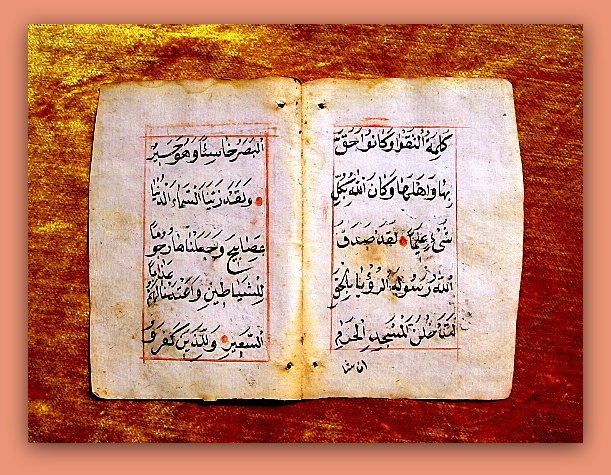 كَلِمَةَ التَّقْوَا وَكَانُوا اَحَقَّ
بِهَا وَاَهْلَهَا وَكَانَ اللّٰهُ بِكُلِّ
شَىْءٍ عَلِيمًا لَقَدْ صَدَقَ
اللّٰهُ رَسُولَهُ الرُّؤْيَا بِالْحَقِّ
لَتَدْخُلُنَّ الْمَسْجِدَ الْحَرَامَ
ان شا
الْبَصَرُ خَاسِئًا وَهُوَ حَسِيرٌ
وَلَقَدْ زَيَّنَّا السَّمَاءَ الدُّنْيَا
بِمَصَابِيحَ وَجَعَلْنَاهَا رُجُومًا
لِلشَّيَاطِينِ وَاَعْتَدْنَا لَهُمْ عَذَابَ
السَّعِيرِ وَلِلَّذِينَ كَفَرُوا